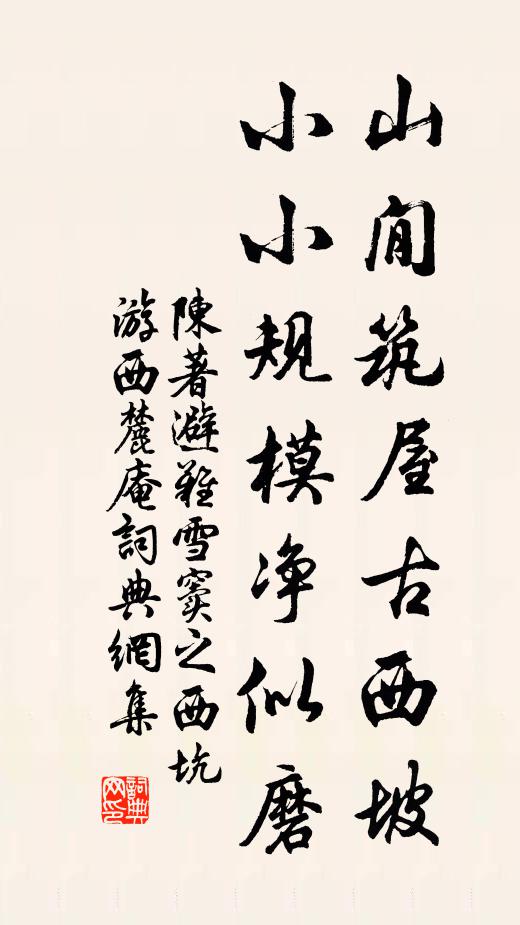 山间筑屋古西坡
小小规模净似磨
陳著避難雪窦之西坑
游西麓庵詞典網集
詞典网印